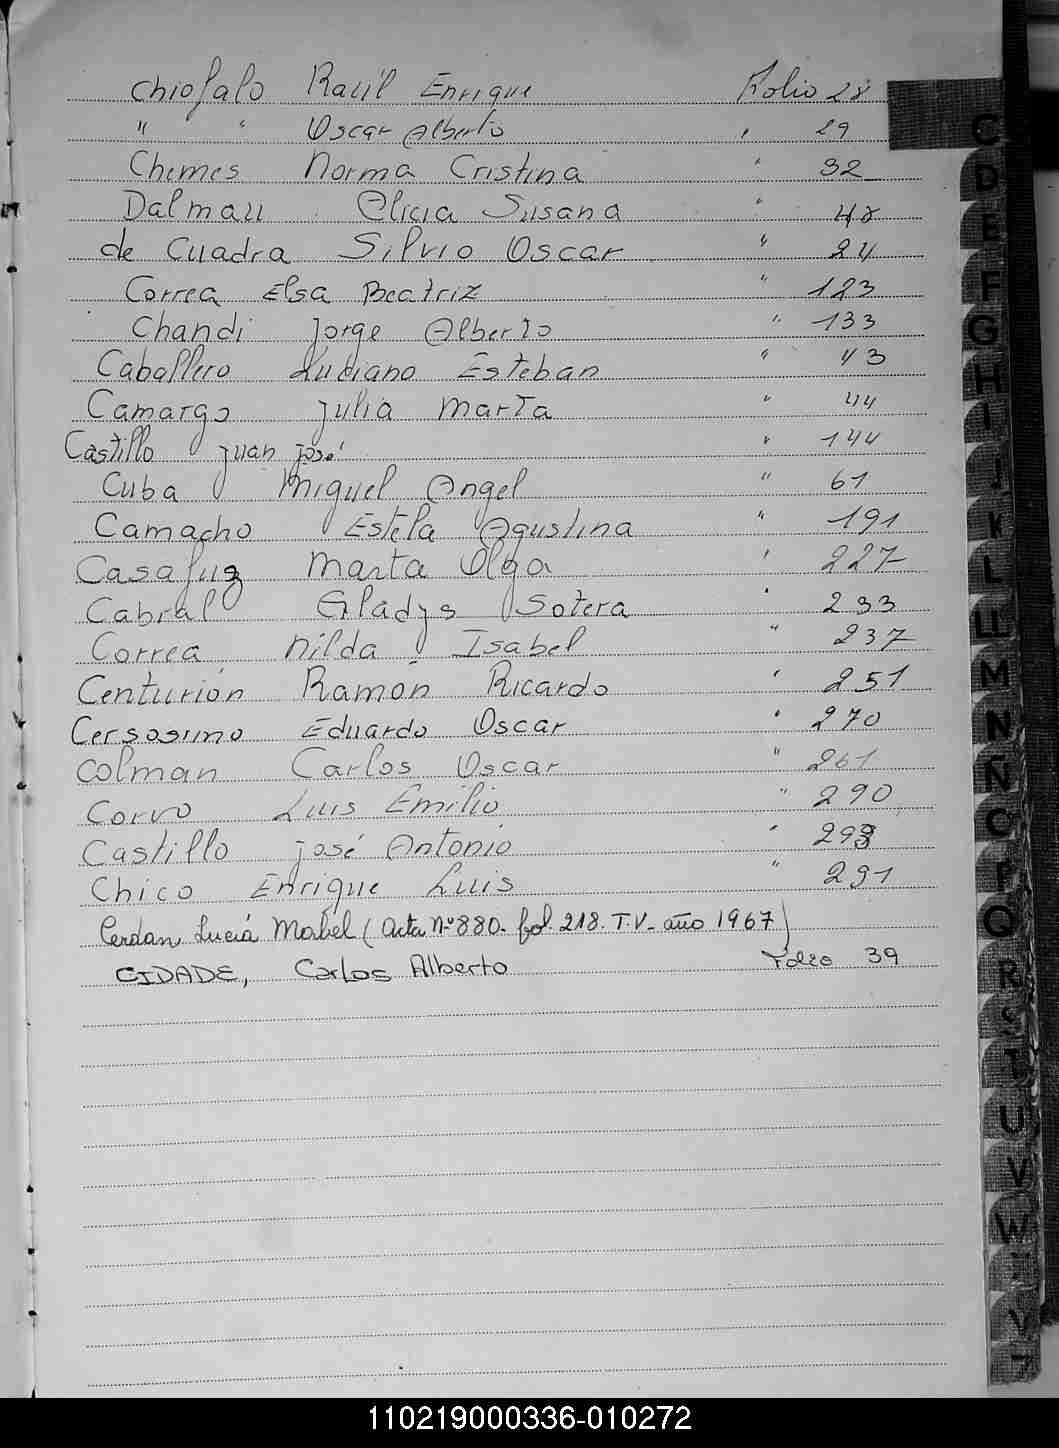 Chiofalo Raúl Enrique Folio 28
" " Oscar Alberto " 29
Chemes Norma Cristina " 32
Dalmau Alicia Susana " 48
de Cuadra Silvio Oscar " 24
Correa Elsa Beatriz " 123
Chandi Jorge Alberto " 133
Caballero Luciano Esteban " 43
Camargo Julia Marta " 44
Castillo Juan José " 144
Cuba Miguel Angel " 61
Camacho Estela Agustina " 191
Casafuz Marta Olga " 227
Cabral Gladys Sotera " 233
Correa Nilda Isabel " 237
Centurión Ramón Ricardo " 251
Cersosimo Eduardo Oscar " 270
Colman Carlos Oscar " 261
Corvo Luis Emilio " 290
Castillo José Antonio "
Chico Enrique Luis " 291
Cerdan Lucía Mabel (Acta Nº 880. fol. 218. T.V. año 1967)
CIDADE, Carlos Alberto Folio 39
C
D
E
F
G
H
I
J
K
L
LL
M
N
Ñ
O
P
Q
R
S
T
U
V
W
Y
Z
110219000336-010272